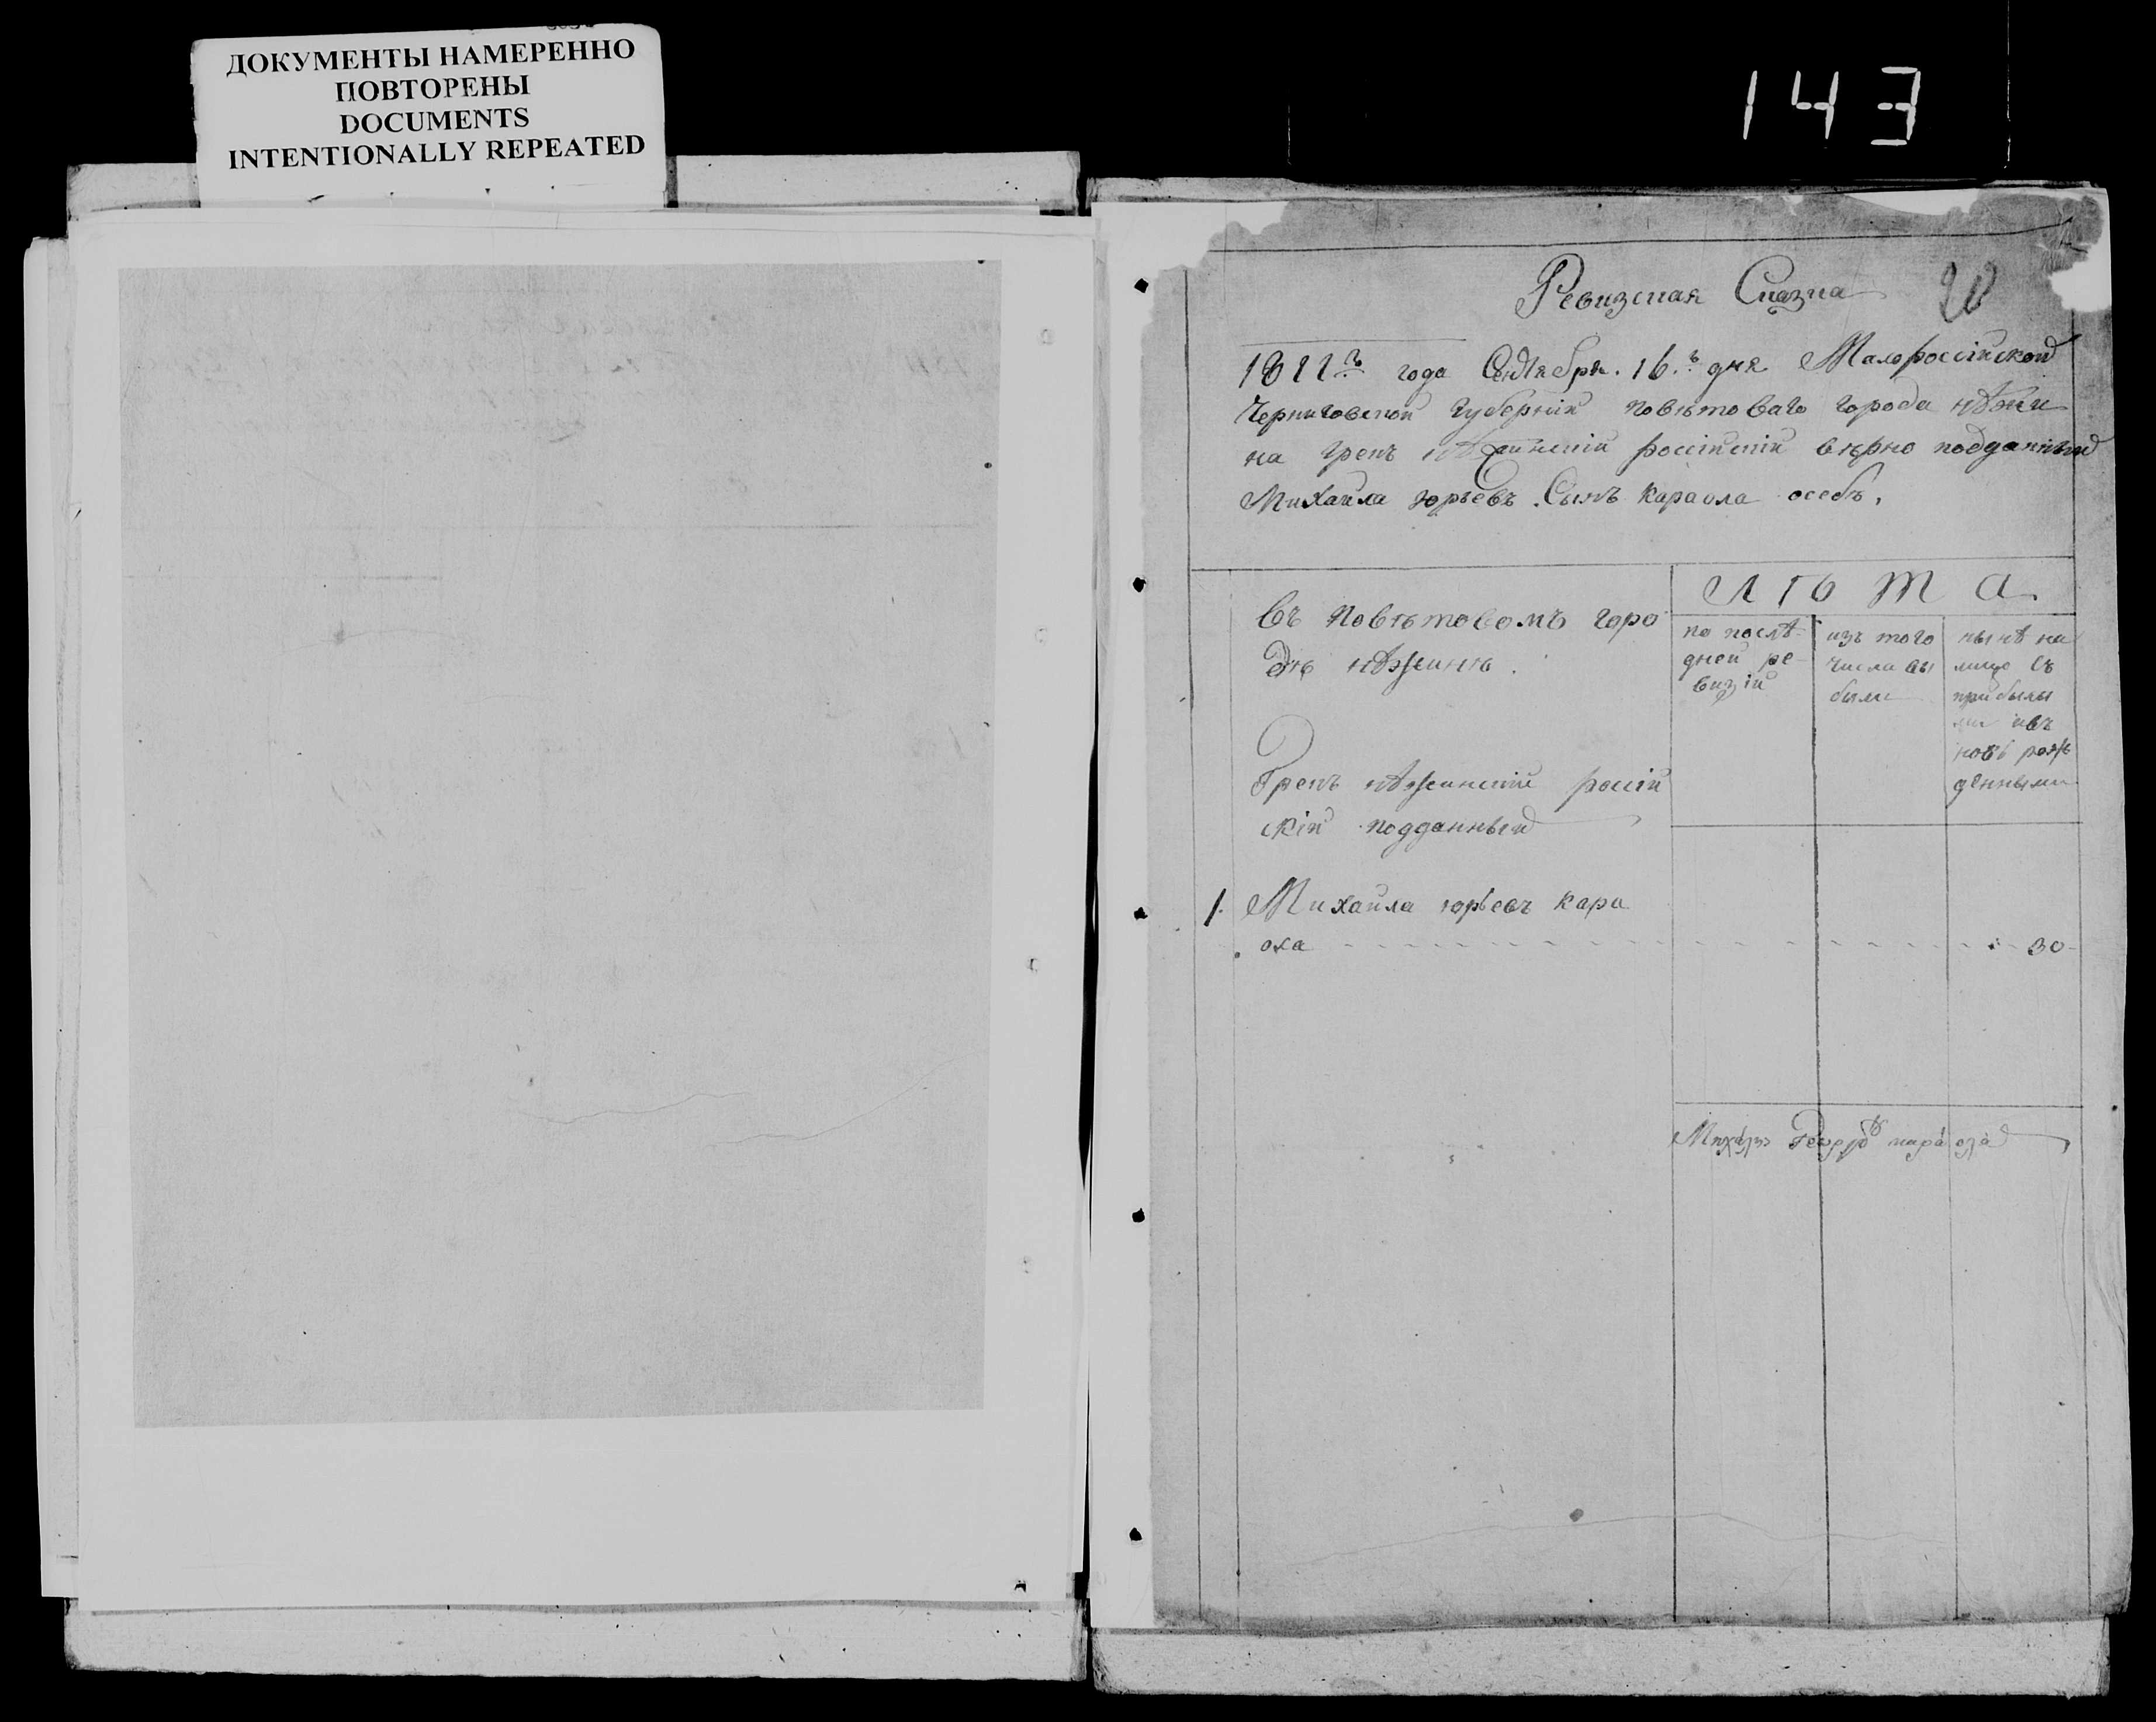 ДОКУМЕНТЫ НАМЕРЕННО
ПОВТОРЕНЫ
DOCUMENTS
INTENTIONALLY REPEATED
143
Ревизская Сказка
20
1811 года Сентября 16 дня Малороссійской
Черниговской губерніи повѣтоваго города нѣжи
на грекъ нѣжинскій россійскій вѣрно подданный
Михайла юрьевъ Сынъ
Въ повѣтовомъ горо
дѣ нѣжинѣ.
ЛѢТА
по послѣ-
дней ре-
визіи
изъ того
числа вы
были
нынѣ на
лицо съ
прибылы
ми
новь рож
денными
Грекъ нѣжинскій россій
скій подданный
1. Михайла юрьевъ кара
30